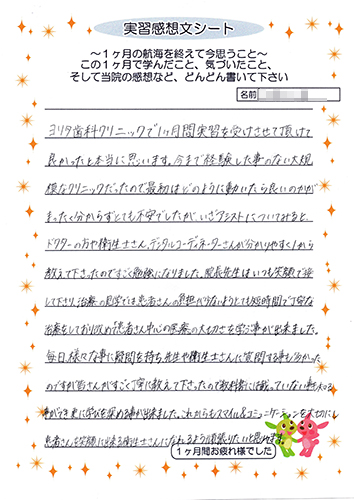 実習感想文シート
～1ヶ月の航海を終えて今思うこと～
この1ヶ月で学んだこと、気づいたこと、
そして当院の感想など、どんどん書いて下さい
名前
ヨリタ歯科クリニックで1ヶ月間実習を受けさせて頂けて
良かったと本当に思います。今まで経験した事のない大規
模なクリニックだったので最初はどのように動いたら良いのかが
まったく分からずとても不安でしたが、いざアシストについてみると
ドクターの方や衛生士さん、デンタルコーディネーターさんが分かりやすく1から
教えて下さったのですごく勉強になりました。院長先生はいつも笑顔で接
して下さり、治療の見学では患者さんの負担が少ないようとても短時間で丁寧な
治療をしており改めて患者さん中心の医療の大切さを学ぶ事が出来ました。
毎日様々な事に疑問を持ち先生や衛生士さんに質問する事も多かった
のですが皆さんがすごく丁寧に教えて下さったので教科書には載っていない事も知る
事ができ更に学びを深める事が出来ました。これからもスマイル&コミュニケーションを大切にし
患者さんを笑顔に出来る衛生士さんになれるよう頑張りたいと思います。
1ヶ月間お疲れ様でした